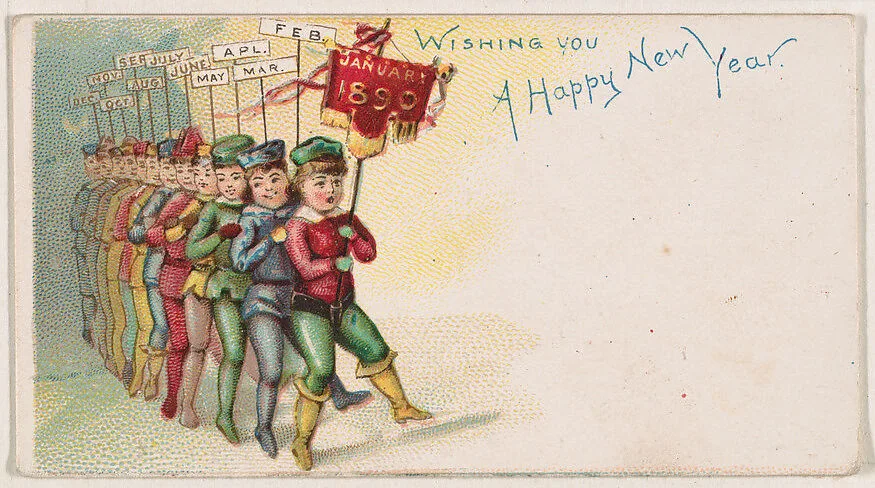 WISHING YOU
A Happy New Year.
JANUARY
1890
FEB.
MAR.
APL.
MAY
JUNE
JULY
AUG
SEP
OCT.
NOV.
DEC